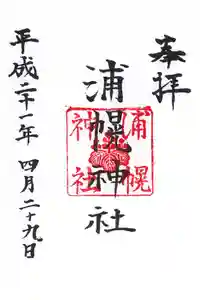 奉拝
浦幌神社
浦幌
神社
平成二十一年 四月二十九日